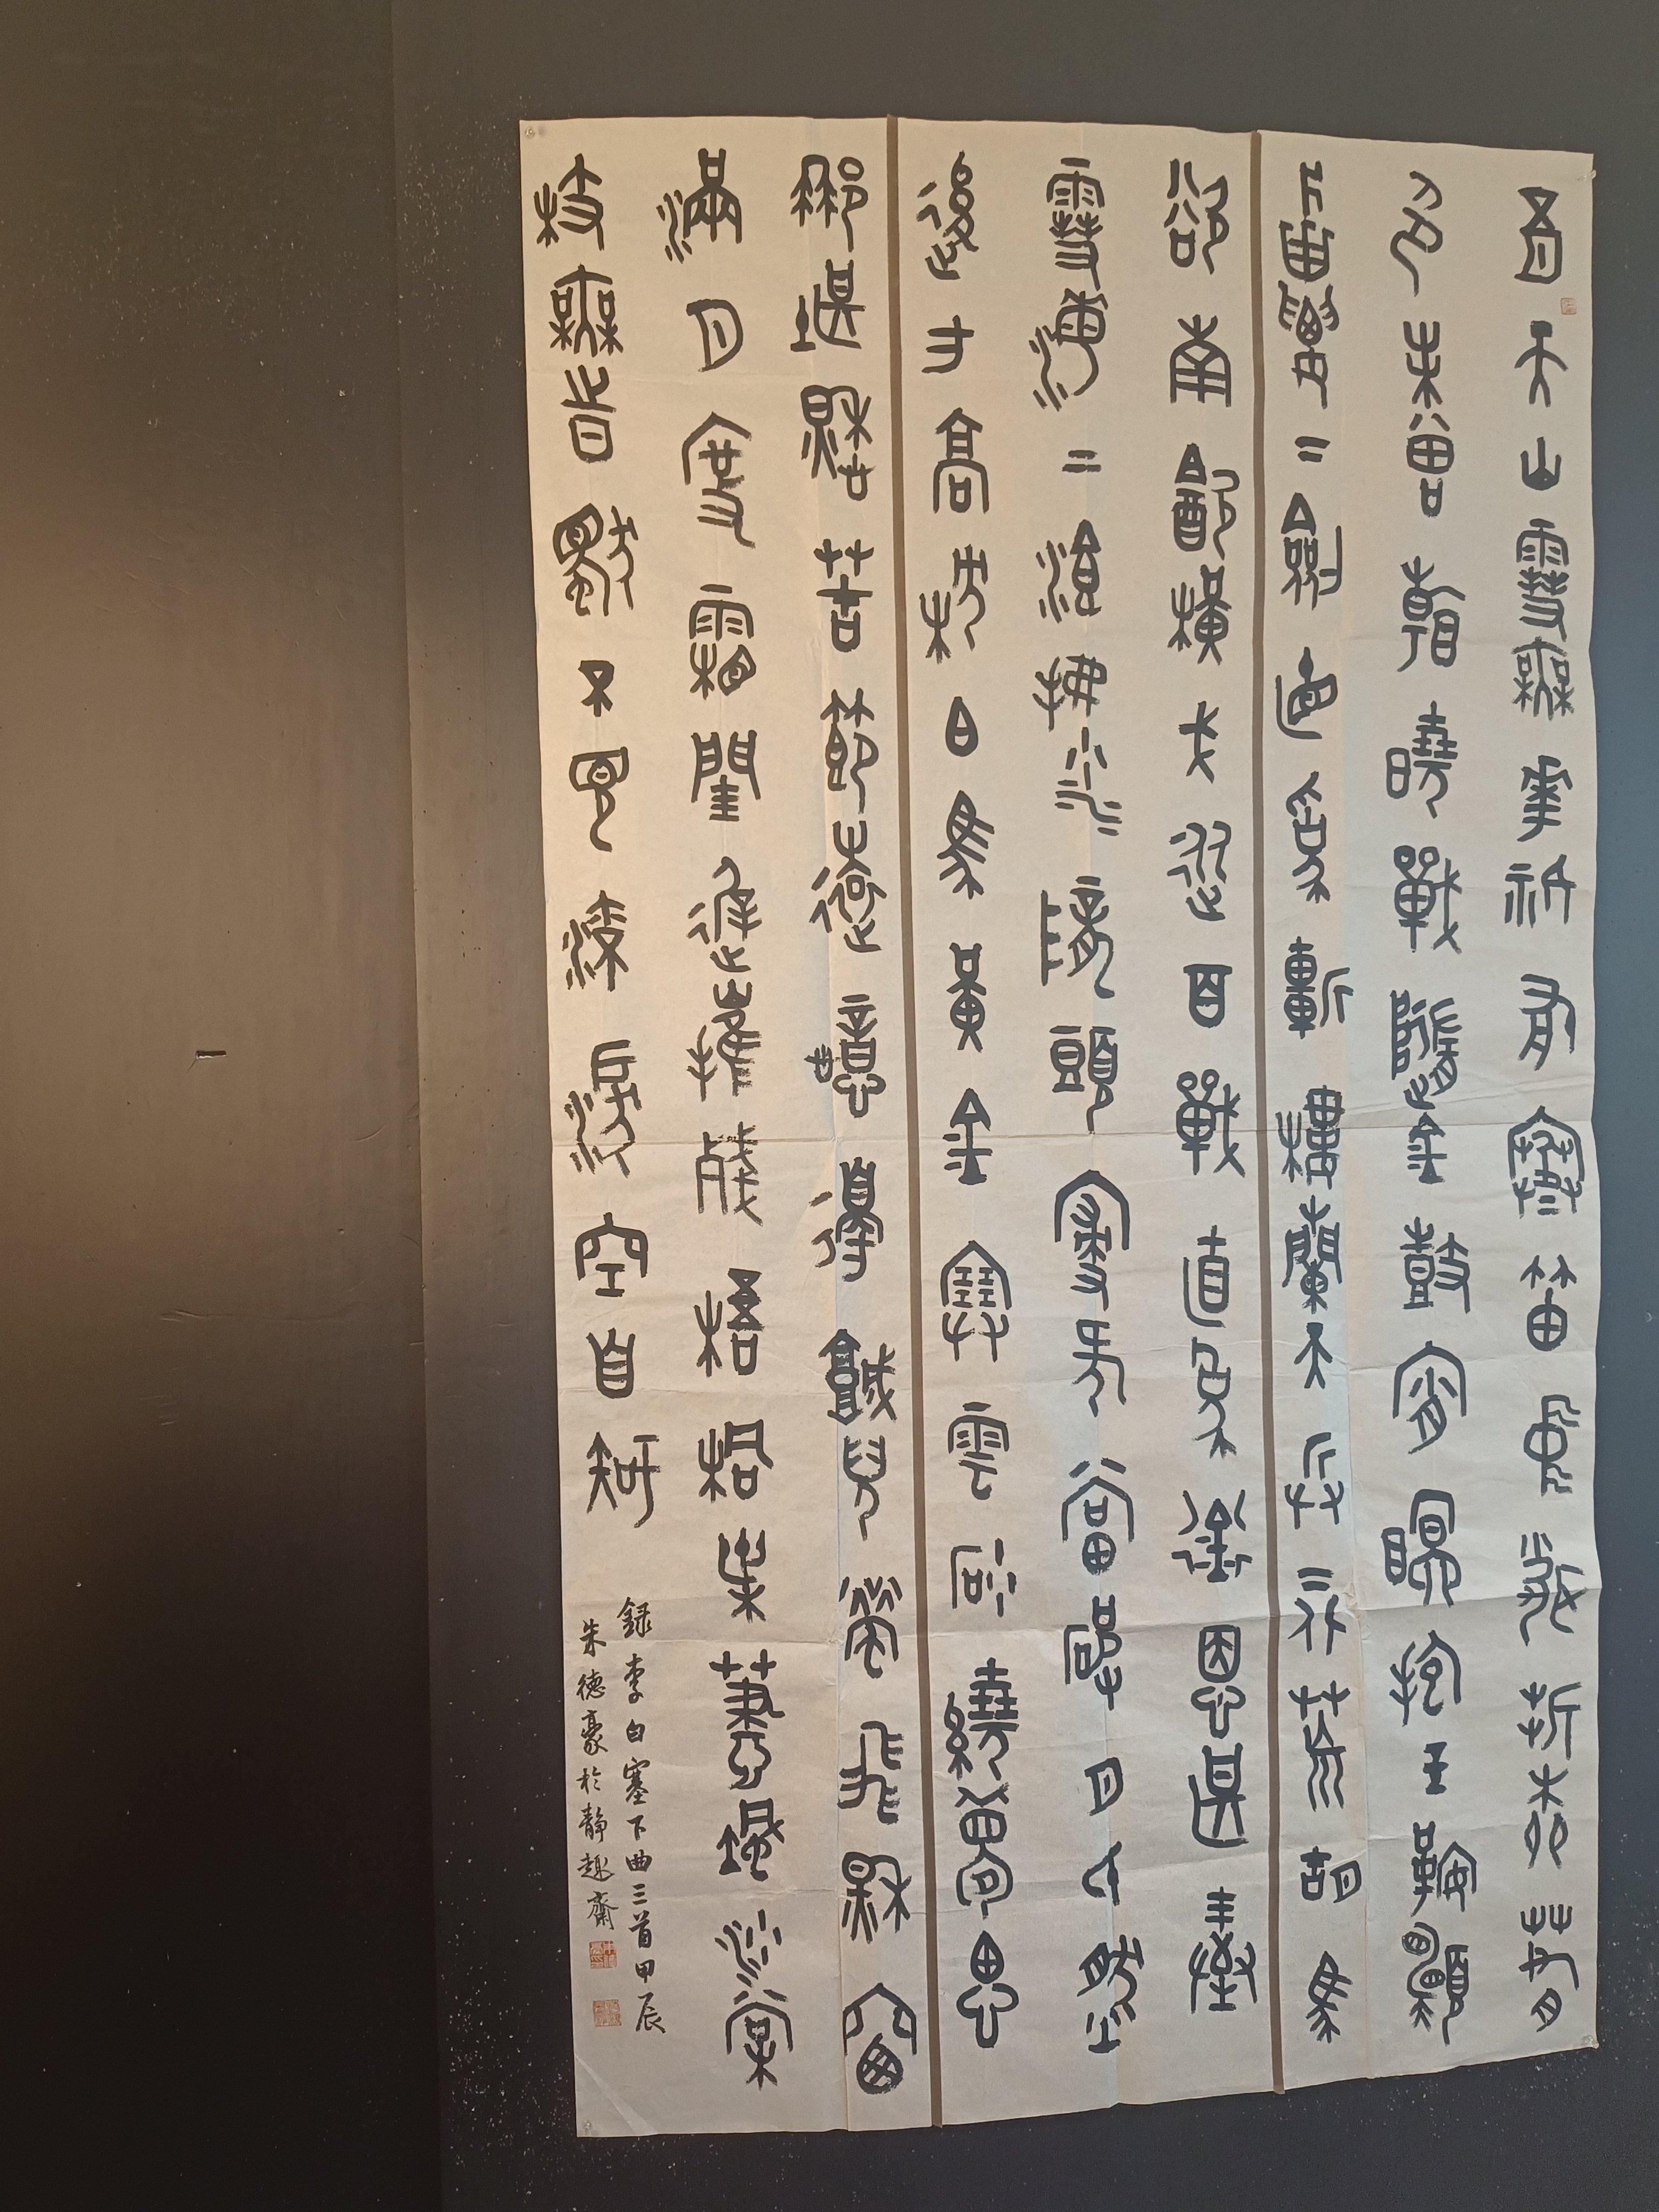 五月天山雪無華祇有寒笛中聞折柳春
色未曾看曉戰隨金鼓宵眠抱玉鞍願
將腰下劍直為斬樓蘭天兵下北荒胡馬
欲南飲橫戈從百戰直為銜恩甚握
雪海上餐拂沙隴頭寢何當破月氏然
後方高枕白馬黃金塞雲砂繞夢思
那堪愁苦節遠憶邊城兒螢飛秋窗
滿月度霜閨遲摧殘梧桐葉蕭颯沙棠
枝無時獨不見流淚空自知
録李白塞下曲三首甲辰
朱德豪於静趣齋